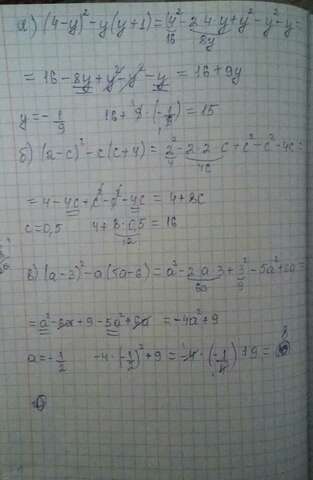 а) (4-y)²-y(y+1)=4²-2·4·y+y²-y²-y=
16 8y
=16-8y+y²-y²-y=16+9y
y=-1/9 16+9·(-1/9)=15
б) (2-c)²-c(c+4)=2²-2·2·c+c²-c²-4c=
4 4c
=4-4c+c²-c²-4c=4+8c
c=0,5 4+8·0,5=16
12
в) (a-3)²-a(5a-6)=a²-2·a·3+3²-5a²+6a=
6a 9
=a²-6a+9-5a²+6a=-4a²+9
a=-1/2 -4·(-1/2)²+9=-4·(-1/4)+9=